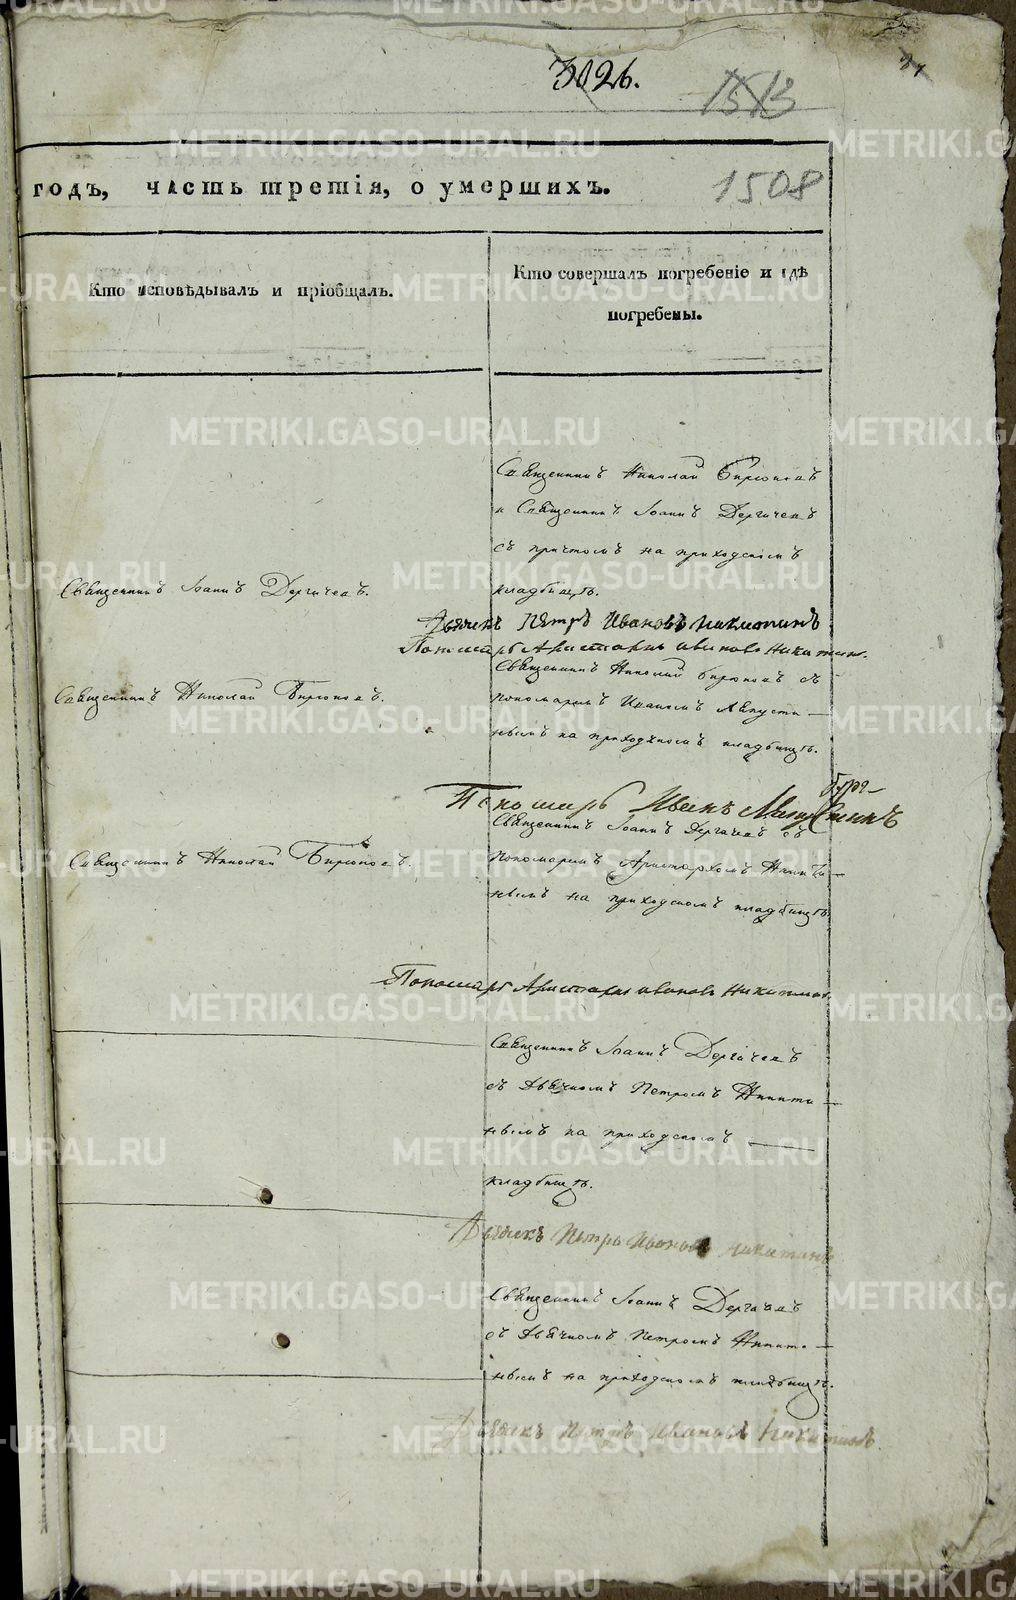 3026.
1513
1508
годъ, часть третія, о умершихъ.
Кто исповѣдывалъ и пріобщалъ.
Кто совершалъ погребеніе и гдѣ
погребены.
Священникъ Николай Бирюковъ
и Священникъ Іоаннъ Дергачевъ
съ причтомъ на приходскомъ
Священникъ Іоаннъ Дергачевъ.
кладбищѣ.
Дьячекъ Петръ Ивановъ Никитинъ
Пономарь Аристархъ Ивановъ Никитин.
Священникъ Николай Бирюковъ съ
Священникъ Николай Бирюковъ.
пономаремъ Иваномъ Августи—
нымъ на приходскомъ кладбищѣ.
Пономарь Иванъ
Священникъ Іоаннъ Дергачевъ съ
Священникъ Николай Бирюковъ.
пономаремъ Аристархомъ Никити—
нымъ на приходскомъ кладбищѣ.
Пономарь Аристархъ Ивановъ Никитинъ.
Священникъ Іоаннъ Дергачевъ
съ Дьячкомъ Петромъ Никити—
нымъ на приходскомъ —
кладбищѣ.
Дьячекъ Петръ Ивановъ Никитинъ
Священникъ Іоаннъ Дергачевъ
съ Дьячкомъ Петромъ Никити—
нымъ на приходскомъ кладбищѣ.
Дьячекъ Петръ Ивановъ Никитинъ
METRIKI.GASO-URAL.RU